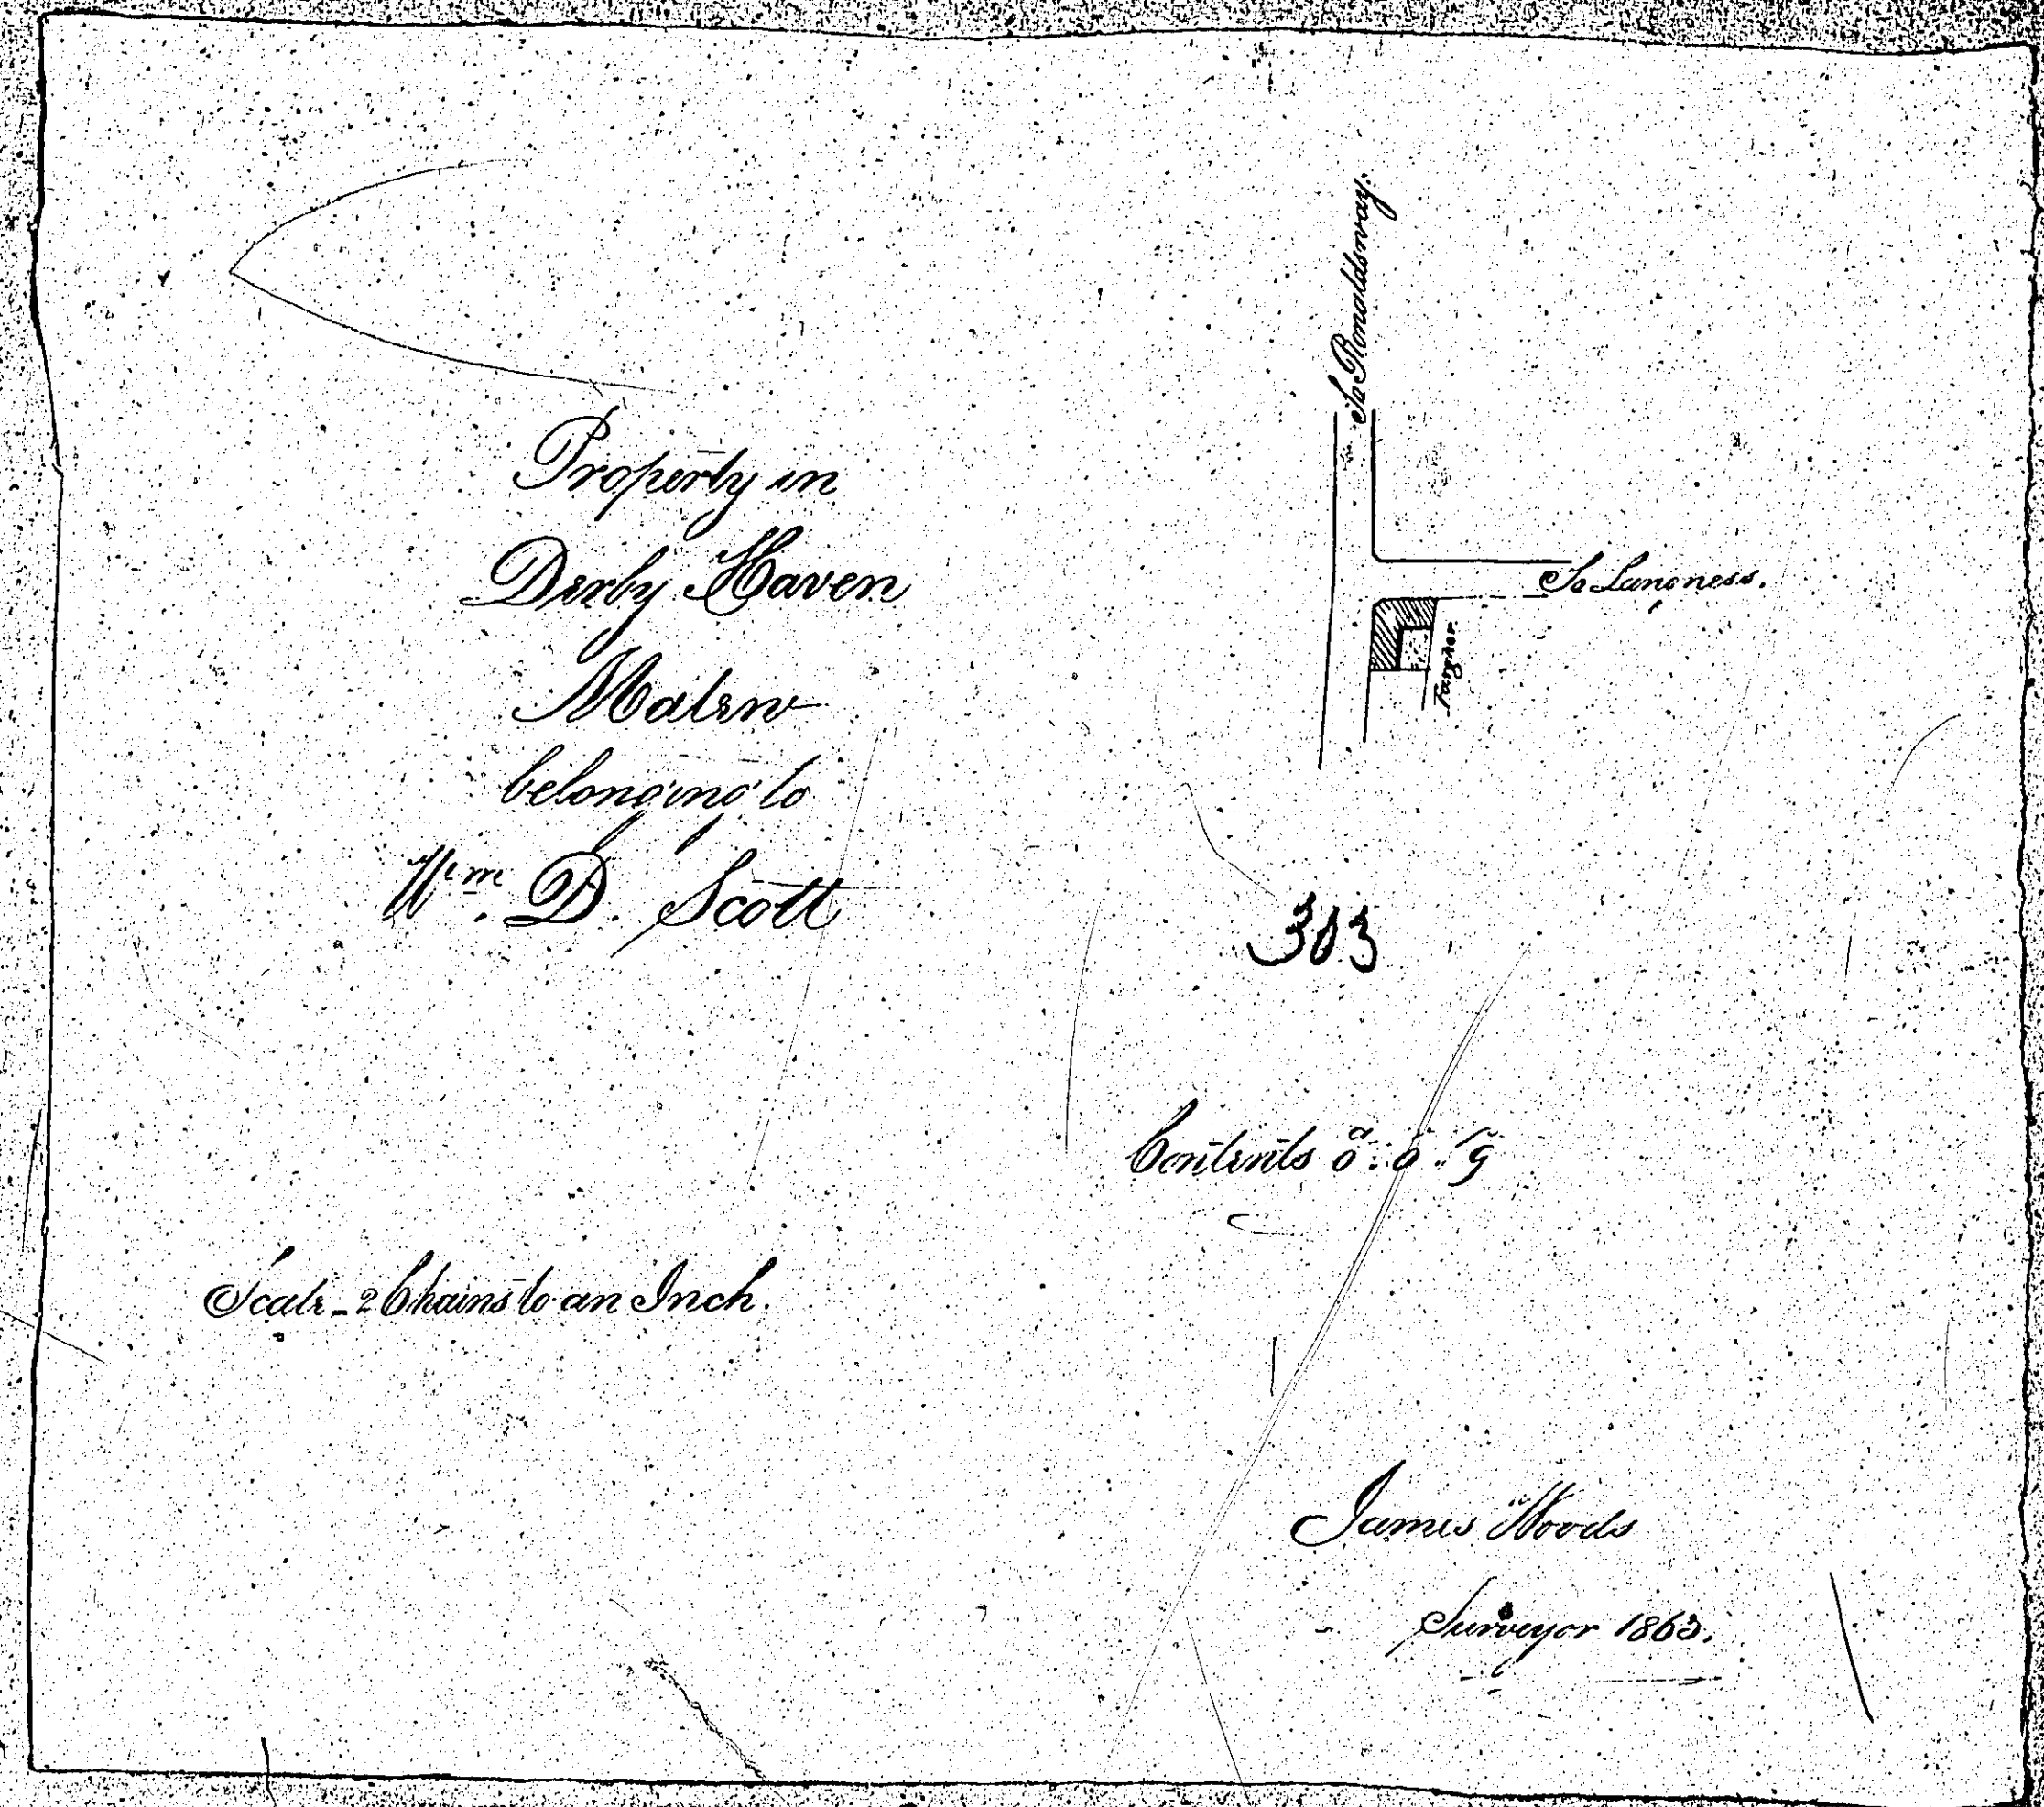 Property in
Derby Haven
Malew
belonging to
Wm. D. Scott
To Ronaldsway.
To Langness.
Fargher
303
Contents
Scale - 2 Chains to an Inch.
James Woods
Surveyor 1863.